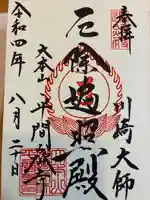 奉拝
川崎大師
厄除遍照殿
大本山平間寺
令和四年八月二十日